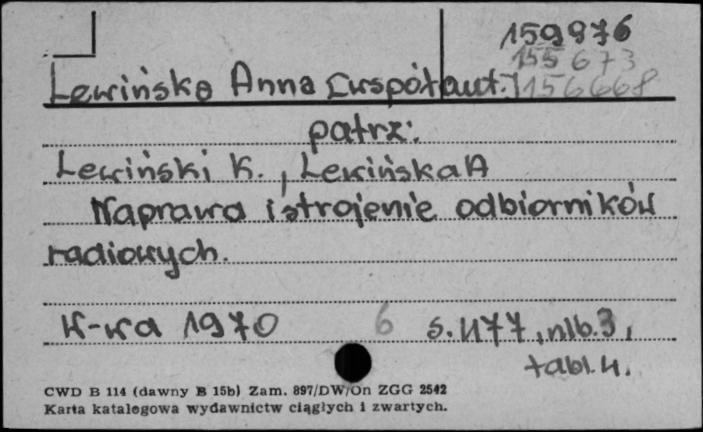 159976
155673
Lewińska Anna [współaut.] 156668
patrz:
Lewiński K., Lewińska A
Naprawa i strojenie odbiorników
radiowych.
W-wa 1970 6 s. 477, nlb. 3,
tabl. 4.
CWD B 114 (dawny B 15b) Zam. 897/DW/On ZGG 2542
Karta katalogowa wydawnictw ciągłych i zwartych.